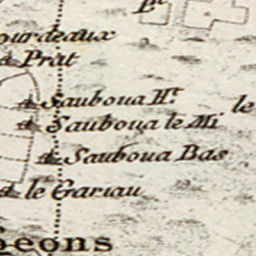 ourdeaux
Prat
Sauboua H.t
le
Sauboua le Mi
Sauboua Bas
le Gariau
Geons